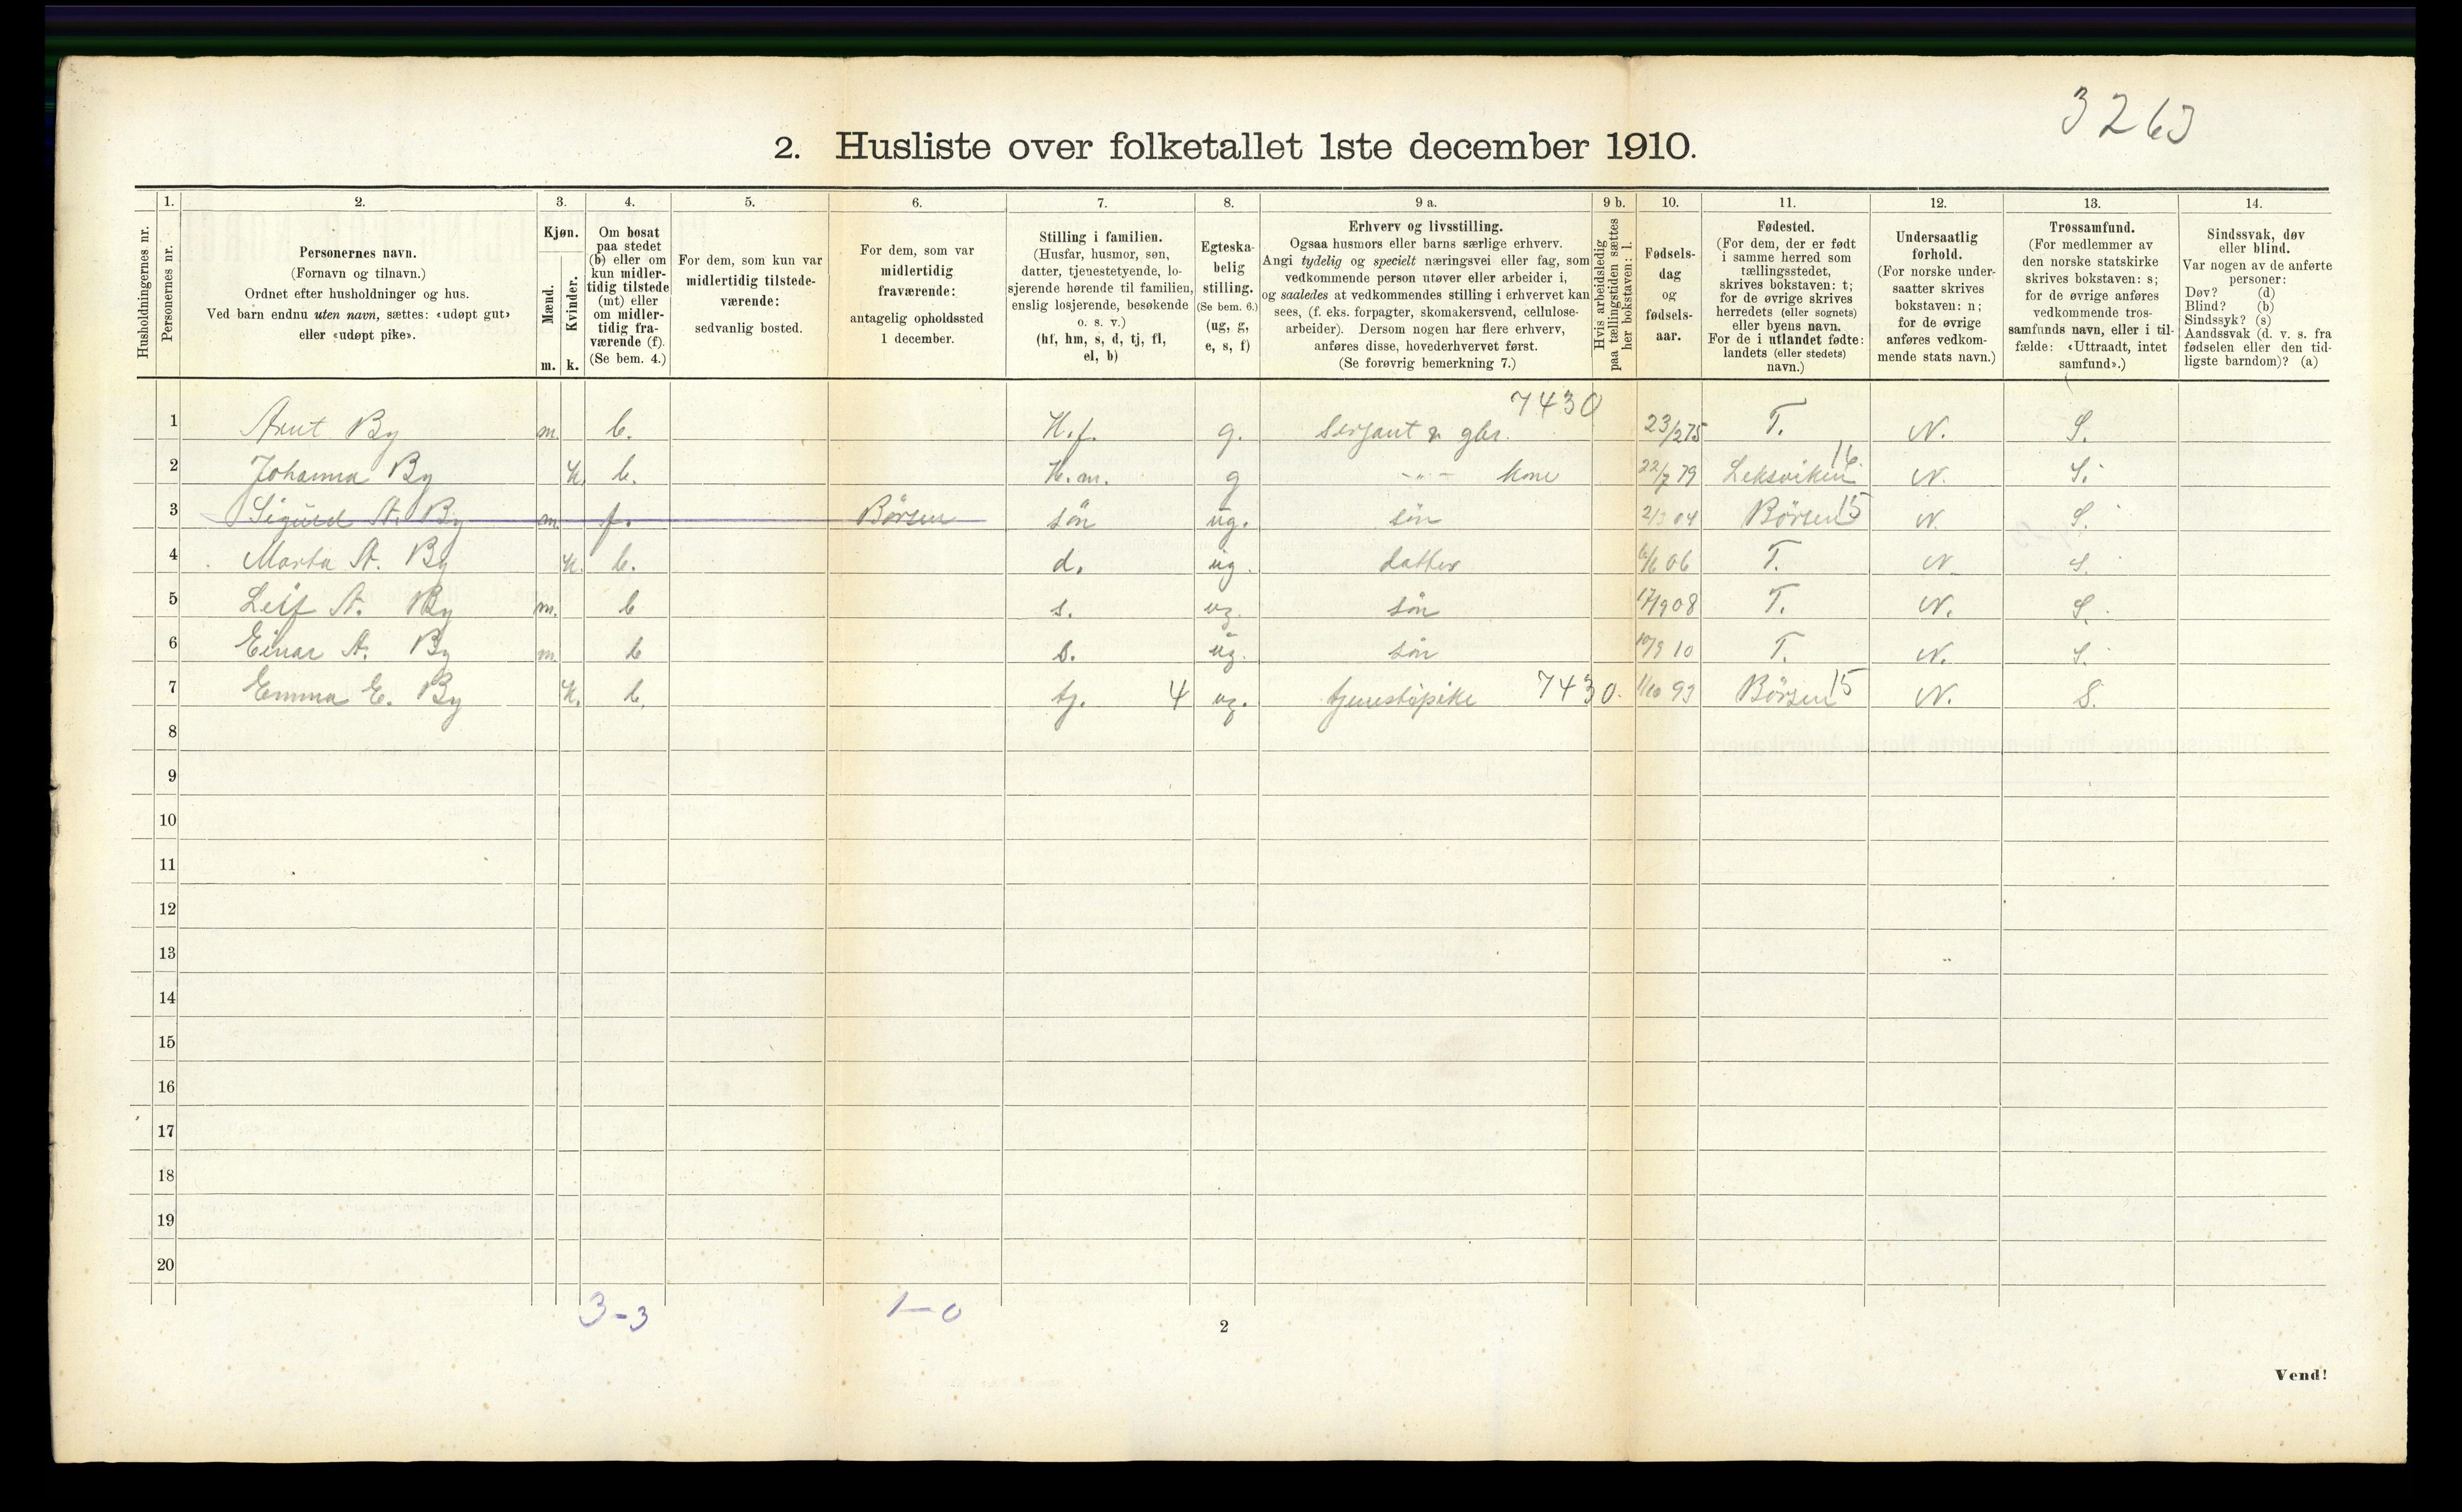 3263
2. Husliste over folketallet 1ste december 1910.
Husholdningernes nr.
1.
Personernes nr.
2.
Personernes navn.
(Fornavn og tilnavn.)
Ordnet efter husholdninger og hus.
Ved barn endnu uten navn, sættes: «udøpt gut»
eller «udøpt pike».
3.
Kjøn.
Mænd.
Kvinder.
m. k.
4.
Om bosat
paa stedet
(b) eller om
kun midler-
tidig tilstede
(mt) eller
om midler-
tidig fra-
værende (f).
(Se bem. 4.)
5.
For dem, som kun var
midlertidig tilstede-
værende:
sedvanlig bosted.
6.
For dem, som var
midlertidig
fraværende:
antagelig opholdssted
1 december.
7.
Stilling i familien.
(Husfar, husmor, søn,
datter, tjenestetyende, lo-
sjerende hørende til familien,
enslig losjerende, besøkende
o. s. v.)
(hf, hm, s, d, tj, fl,
el, b)
8.
Egteska-
belig
stilling.
(Se bem. 6.)
(ug, g,
e, s, f)
9 a.
Erhverv og livsstilling.
Ogsaa husmors eller barns særlige erhverv.
Angi tydelig og specielt næringsvei eller fag, som
vedkommende person utøver eller arbeider i,
og saaledes at vedkommendes stilling i erhvervet kan
sees, (f. eks. forpagter, skomakersvend, cellulose-
arbeider). Dersom nogen har flere erhverv,
anføres disse, hovederhvervet først.
(Se forøvrig bemerkning 7.)
9 b.
Hvis arbeidsledig
paa tællingstiden sættes
her bokstaven: l.
10.
Fødsels-
dag
og
fødsels-
aar.
11.
Fødested.
(For dem, der er født
i samme herred som
tællingsstedet,
skrives bokstaven: t;
for de øvrige skrives
herredets (eller sognets)
eller byens navn.
For de i utlandet fødte:
landets (eller stedets)
navn.)
12.
Undersaatlig
forhold.
(For norske under-
saatter skrives
bokstaven: n;
for de øvrige
anføres vedkom-
mende stats navn.)
13.
Trossamfund.
(For medlemmer av
den norske statskirke
skrives bokstaven: s;
for de øvrige anføres
vedkommende tros-
samfunds navn, eller i til-
fælde: «Uttraadt, intet
samfund».)
14.
Sindssvak, døv
eller blind.
Var nogen av de anførte
personer:
Døv? (d)
Blind? (b)
Sindssyk? (s)
Aandssvak (d. v. s. fra
fødselen eller den tid-
ligste barndom)? (a)
7430
1 Arnt By m. b. H.f. g. Serjant & gbr. 23/2 75 T. N. S.
2 Johanna By K. b. H.m. g -"- kone 22/7 79 Leksviken 16 N. S.
3 Sigurd A. By m. f. Børsen søn ug. søn 2/3 04 Børsen 15 N. S.
4 Marta A. By K. b. d. ug. datter 6/6 06 T. N. S.
5 Leif A. By m. b s. ug. søn 17/9 08 T. N. S.
6 Einar A. By m. b s. ug. søn 10/9 10 T. N. S.
7 Emma E. By K. b. tj. 4 ug. tjenestepike 7430. 1/10 93 Børsen 15 N. S.
8
9
10
11
12
13
14
15
16
17
18
19
20
3-3
1-0
2
Vend!